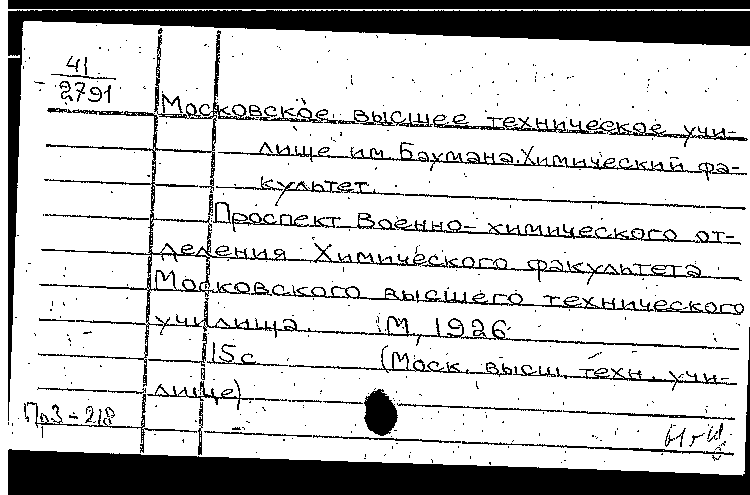 41
2791
Московское высшее техническое учи-
лище им. Баумана. Химический фа-
культет.
Проспект Военно-химического от-
деления Химического факультета
Московского высшего технического
училища. М, 1926
15с (Моск. высш. техн. учи-
лище)
Пр3-218